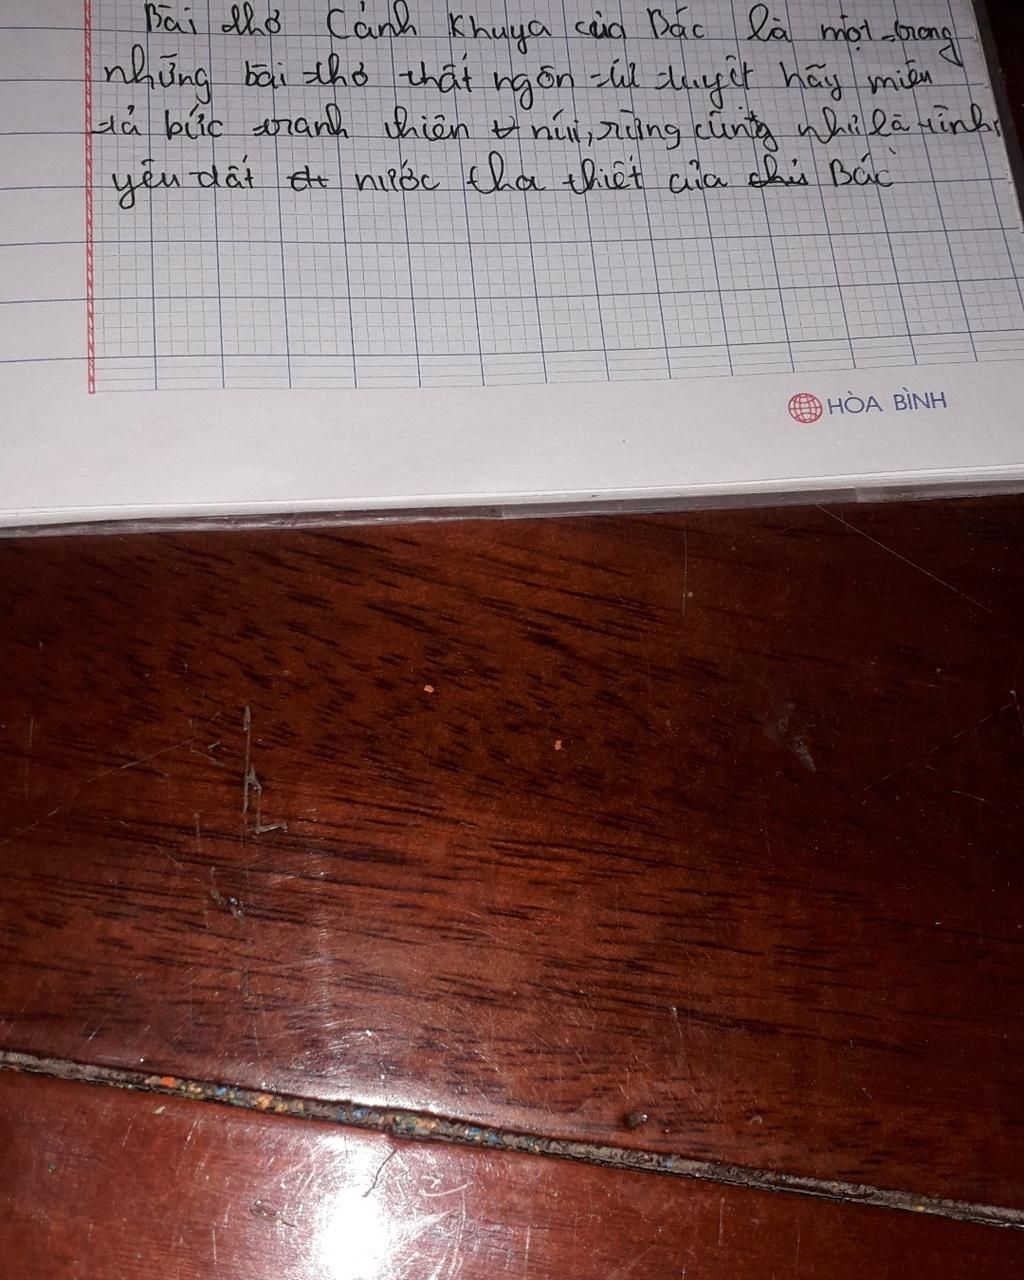 Bài thơ Cảnh Khuya của Bác là một trong
những bài thơ thất ngôn tứ tuyệt hãy miêu
tả bức tranh thiên núi, rừng cũng như là tình
yêu đất nước tha thiết của Bác
HÒA BÌNH